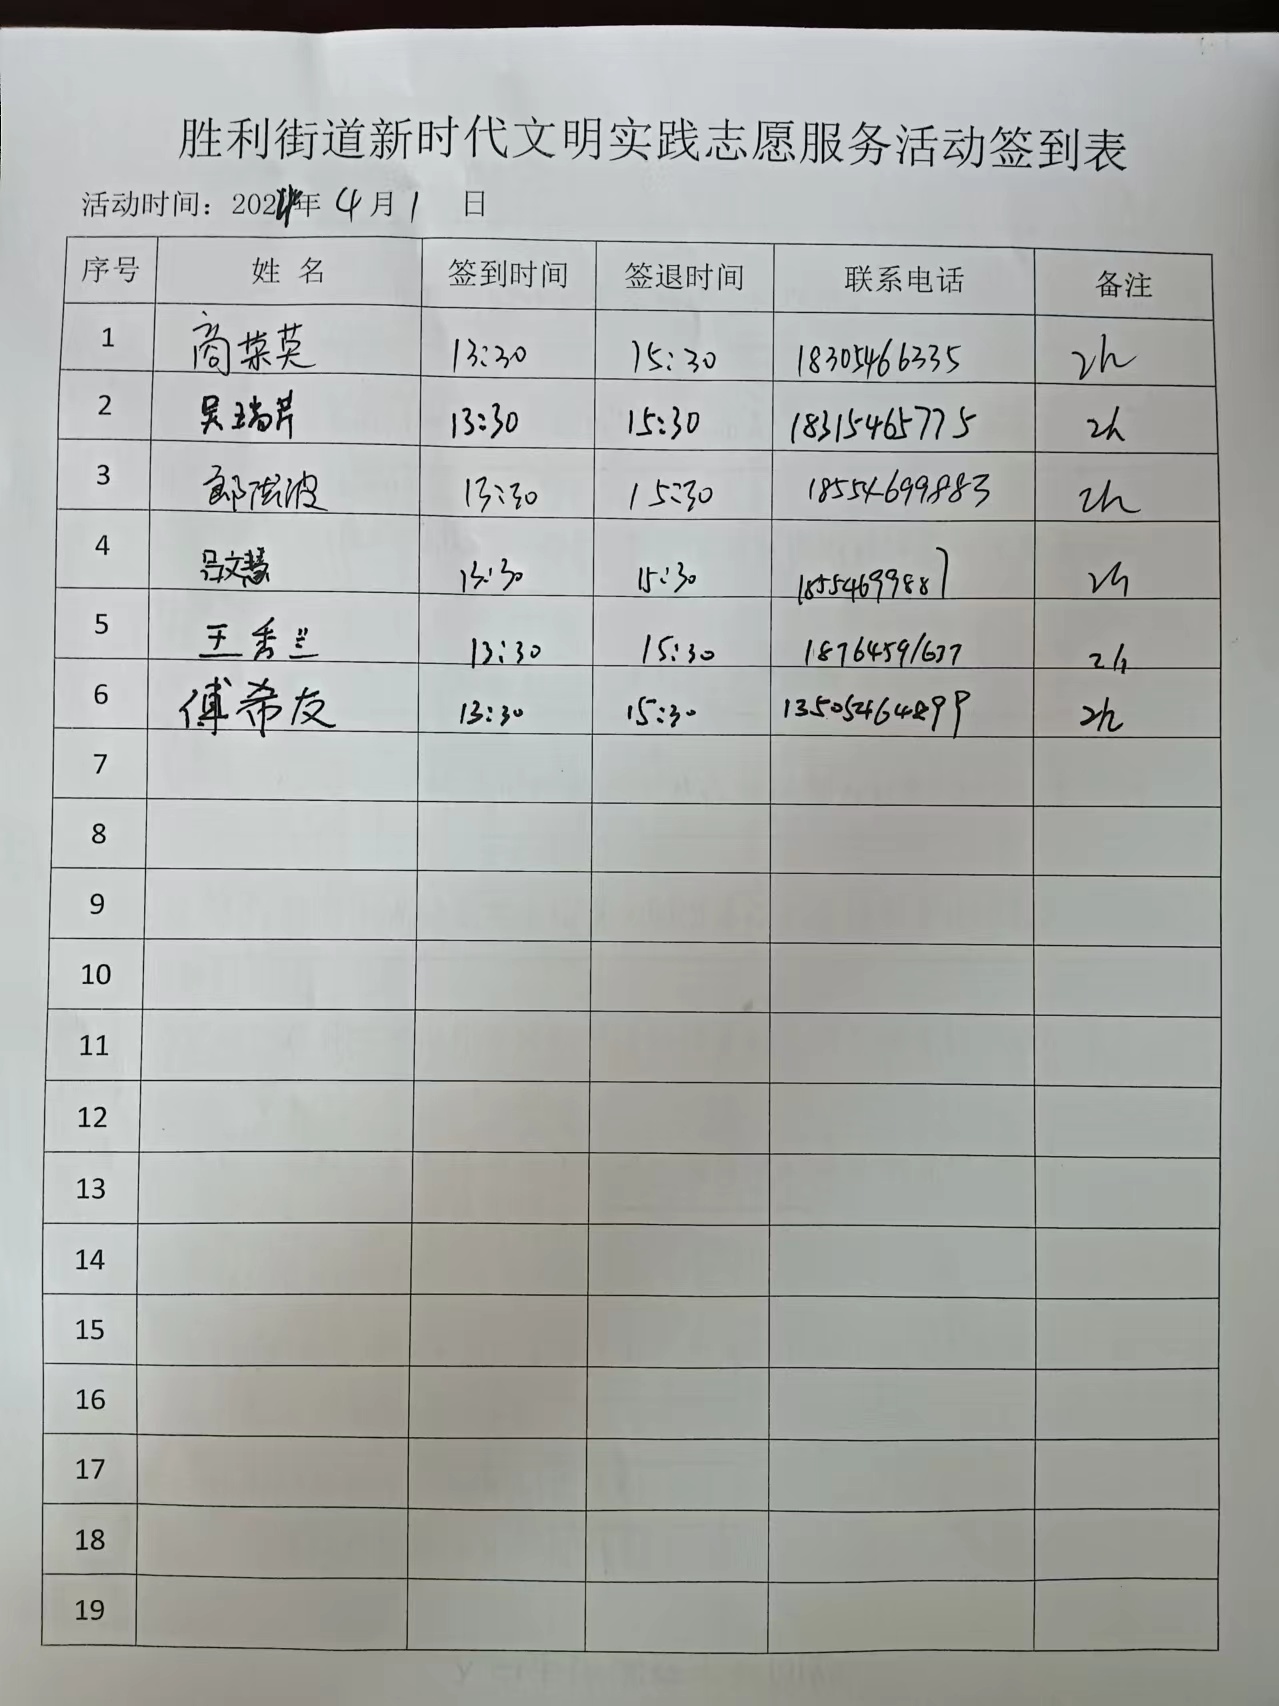 胜利街道新时代文明实践志愿服务活动签到表
活动时间：2024年 4月 1 日
序号 姓 名 签到时间 签退时间 联系电话 备注
1 商菜英 13:30 15:30 18305466335 2h
2 吴瑞芹 13:30 15:30 18315465775 2h
3 波 13:30 15:30 18554699883 2h
4 吕文慧 13:30 15:30 18554699887 2h
5 王秀兰 13:30 15:30 18764591637 2h
6 傅希友 13:30 15:30 13505464899 2h
7
8
9
10
11
12
13
14
15
16
17
18
19